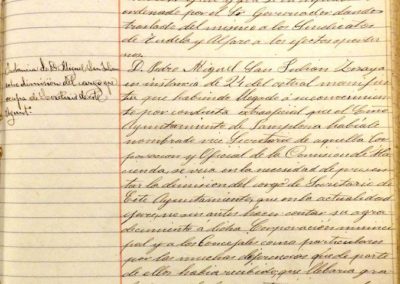 ordenado por el Sr. Governador dando
traslado del mismo a los Sindicatos
de Tudela y Alfaro a los efectos oportu-
nos.
Instancia de D. Miguel San Julian
sobre dimisión del cargo que
ocupa de Secretario de este
Ayunt.º
D. Pedro Miguel San Julian Zozaya
en instancia de 24 del actual manifies-
ta que habiendo llegado a su conocimien-
to por conducto extraoficial que el Excmo
Ayuntamiento de Pamplona habiale
nombrado vice Secretario de aquella Cor-
poracion y Oficial de la Comision de Ha-
cienda, se veia en la necesidad de presen-
tar la dimision del cargo de Secretario de
Este Ayuntamiento, que en la actualidad
ejerce, no sin antes hacer constar su agra-
decimiento a dicha Corporacion munici-
pal y a los Concejales como particulares
por las muchas deferencias que de parte
de ellos habia recibido, que llevaria gra